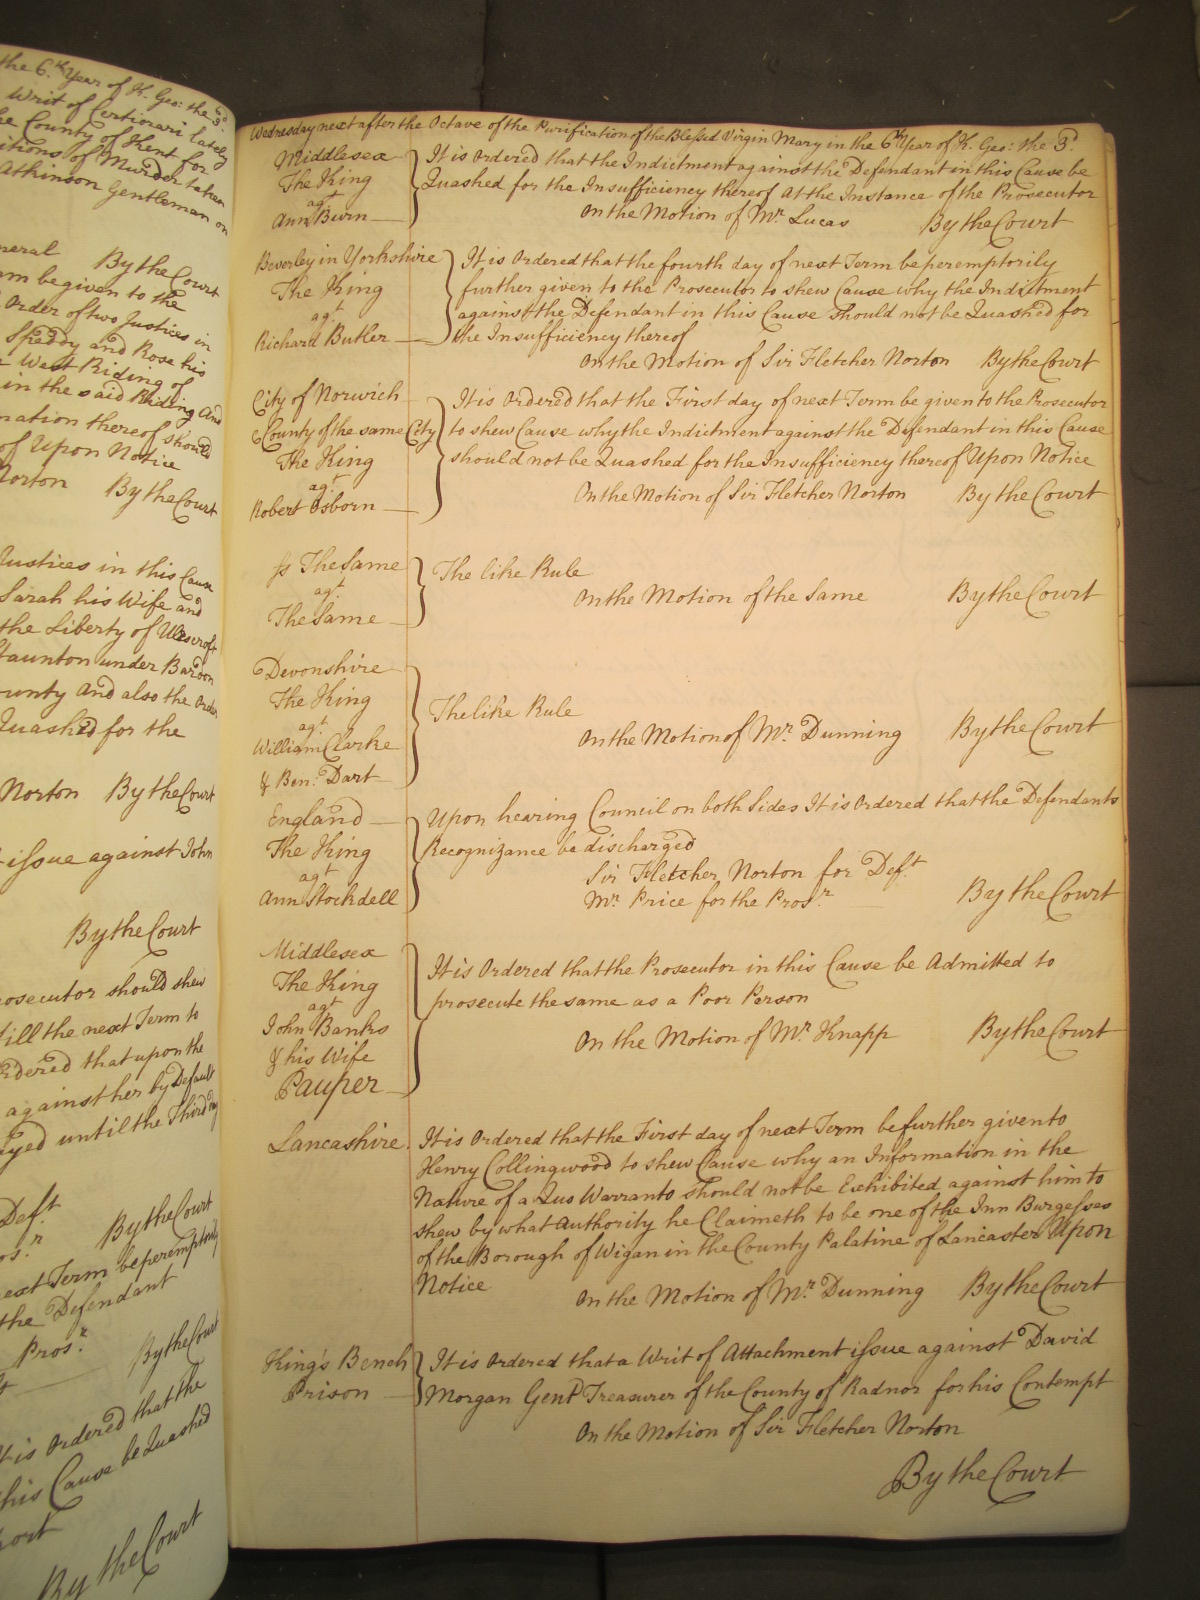 the 6.th Year of K. Geo: the 3d.
Writ of Certiorari lately
the County of Kent for
itions of Murder taken
Atkinson Gentleman on
neral By the Court
am be given to the
Order of two Justices in
Speddy and Rose his
West Riding of
in the said Riding And
nation thereof should
of Upon Notice
Norton By the Court
Justices in this Cause
Sarah his Wife and
the Liberty of
Staunton under Bardon
unty And also the Order
Quashed for the
Norton By the Court
issue against John
By the Court
rosecutor should shew
till the next Term to
rdered that upon the
against her by Default
yed until the Third day
Deft.
os.r By the Court
next Term be peremptorily
the Defendant
Pros.r
By the Court
It is Ordered that the
this Cause be Quashed
By the Court
Wednesday next after the Octave of the Purification of the Blessed Virgin Mary in the 6th Year of K. Geo: the 3d.
Middlesex
The King
agt
Ann Burn
It is Ordered that the Indictment against the Defendant in this Cause be
Quashed for the Insufficiency thereof At the Instance of the Prosecutor
On the Motion of Mr. Lucas By the Court
Beverley in Yorkshire
The King
agt
Richard Butler
It is Ordered that the fourth day of next Term be peremptorily
further given to the Prosecutor to shew Cause why the Indictment
against the Defendant in this Cause should not be Quashed for
the Insufficiency thereof
On the Motion of Sir Fletcher Norton By the Court
City of Norwich
& County of the same City
The King
agt
Robert Osborn
It is Ordered that the First day of next Term be given to the Prosecutor
to shew Cause why the Indictment against the Defendant in this Cause
should not be Quashed for the Insufficiency thereof Upon Notice
On the Motion of Sir Fletcher Norton By the Court
ss The Same
agt
The Same
The like Rule
On the Motion of the Same By the Court
Devonshire
The King
agt
William Clarke
& Ben: Dart
The like Rule
On the Motion of Mr. Dunning By the Court
England
The King
agt
Ann Stockdell
Upon hearing Council on both Sides It is Ordered that the Defendants
Recognizance be discharged
Sir Fletcher Norton for Deft.
Mr. Price for the Pros.r By the Court
Middlesex
The King
agt
John Banks
& his Wife
Pauper
It is Ordered that the Prosecutor in this Cause be Admitted to
prosecute the same as a Poor Person
On the Motion of Mr. Knapp By the Court
Lancashire.
It is Ordered that the First day of next Term be further given to
Henry Collingwood to shew Cause why an Information in the
Nature of a Quo Warranto should not be Exhibited against him to
shew by what Authority he Claimeth to be one of the Inn Burgesses
of the Borough of Wigan in the County Palatine of Lancaster Upon
Notice
On the Motion of Mr. Dunning By the Court
King's Bench
Prison
It is Ordered that a Writ of Attachment issue against David
Morgan Gent. Treasurer of the County of Radnor for his Contempt
On the Motion of Sir Fletcher Norton
By the Court